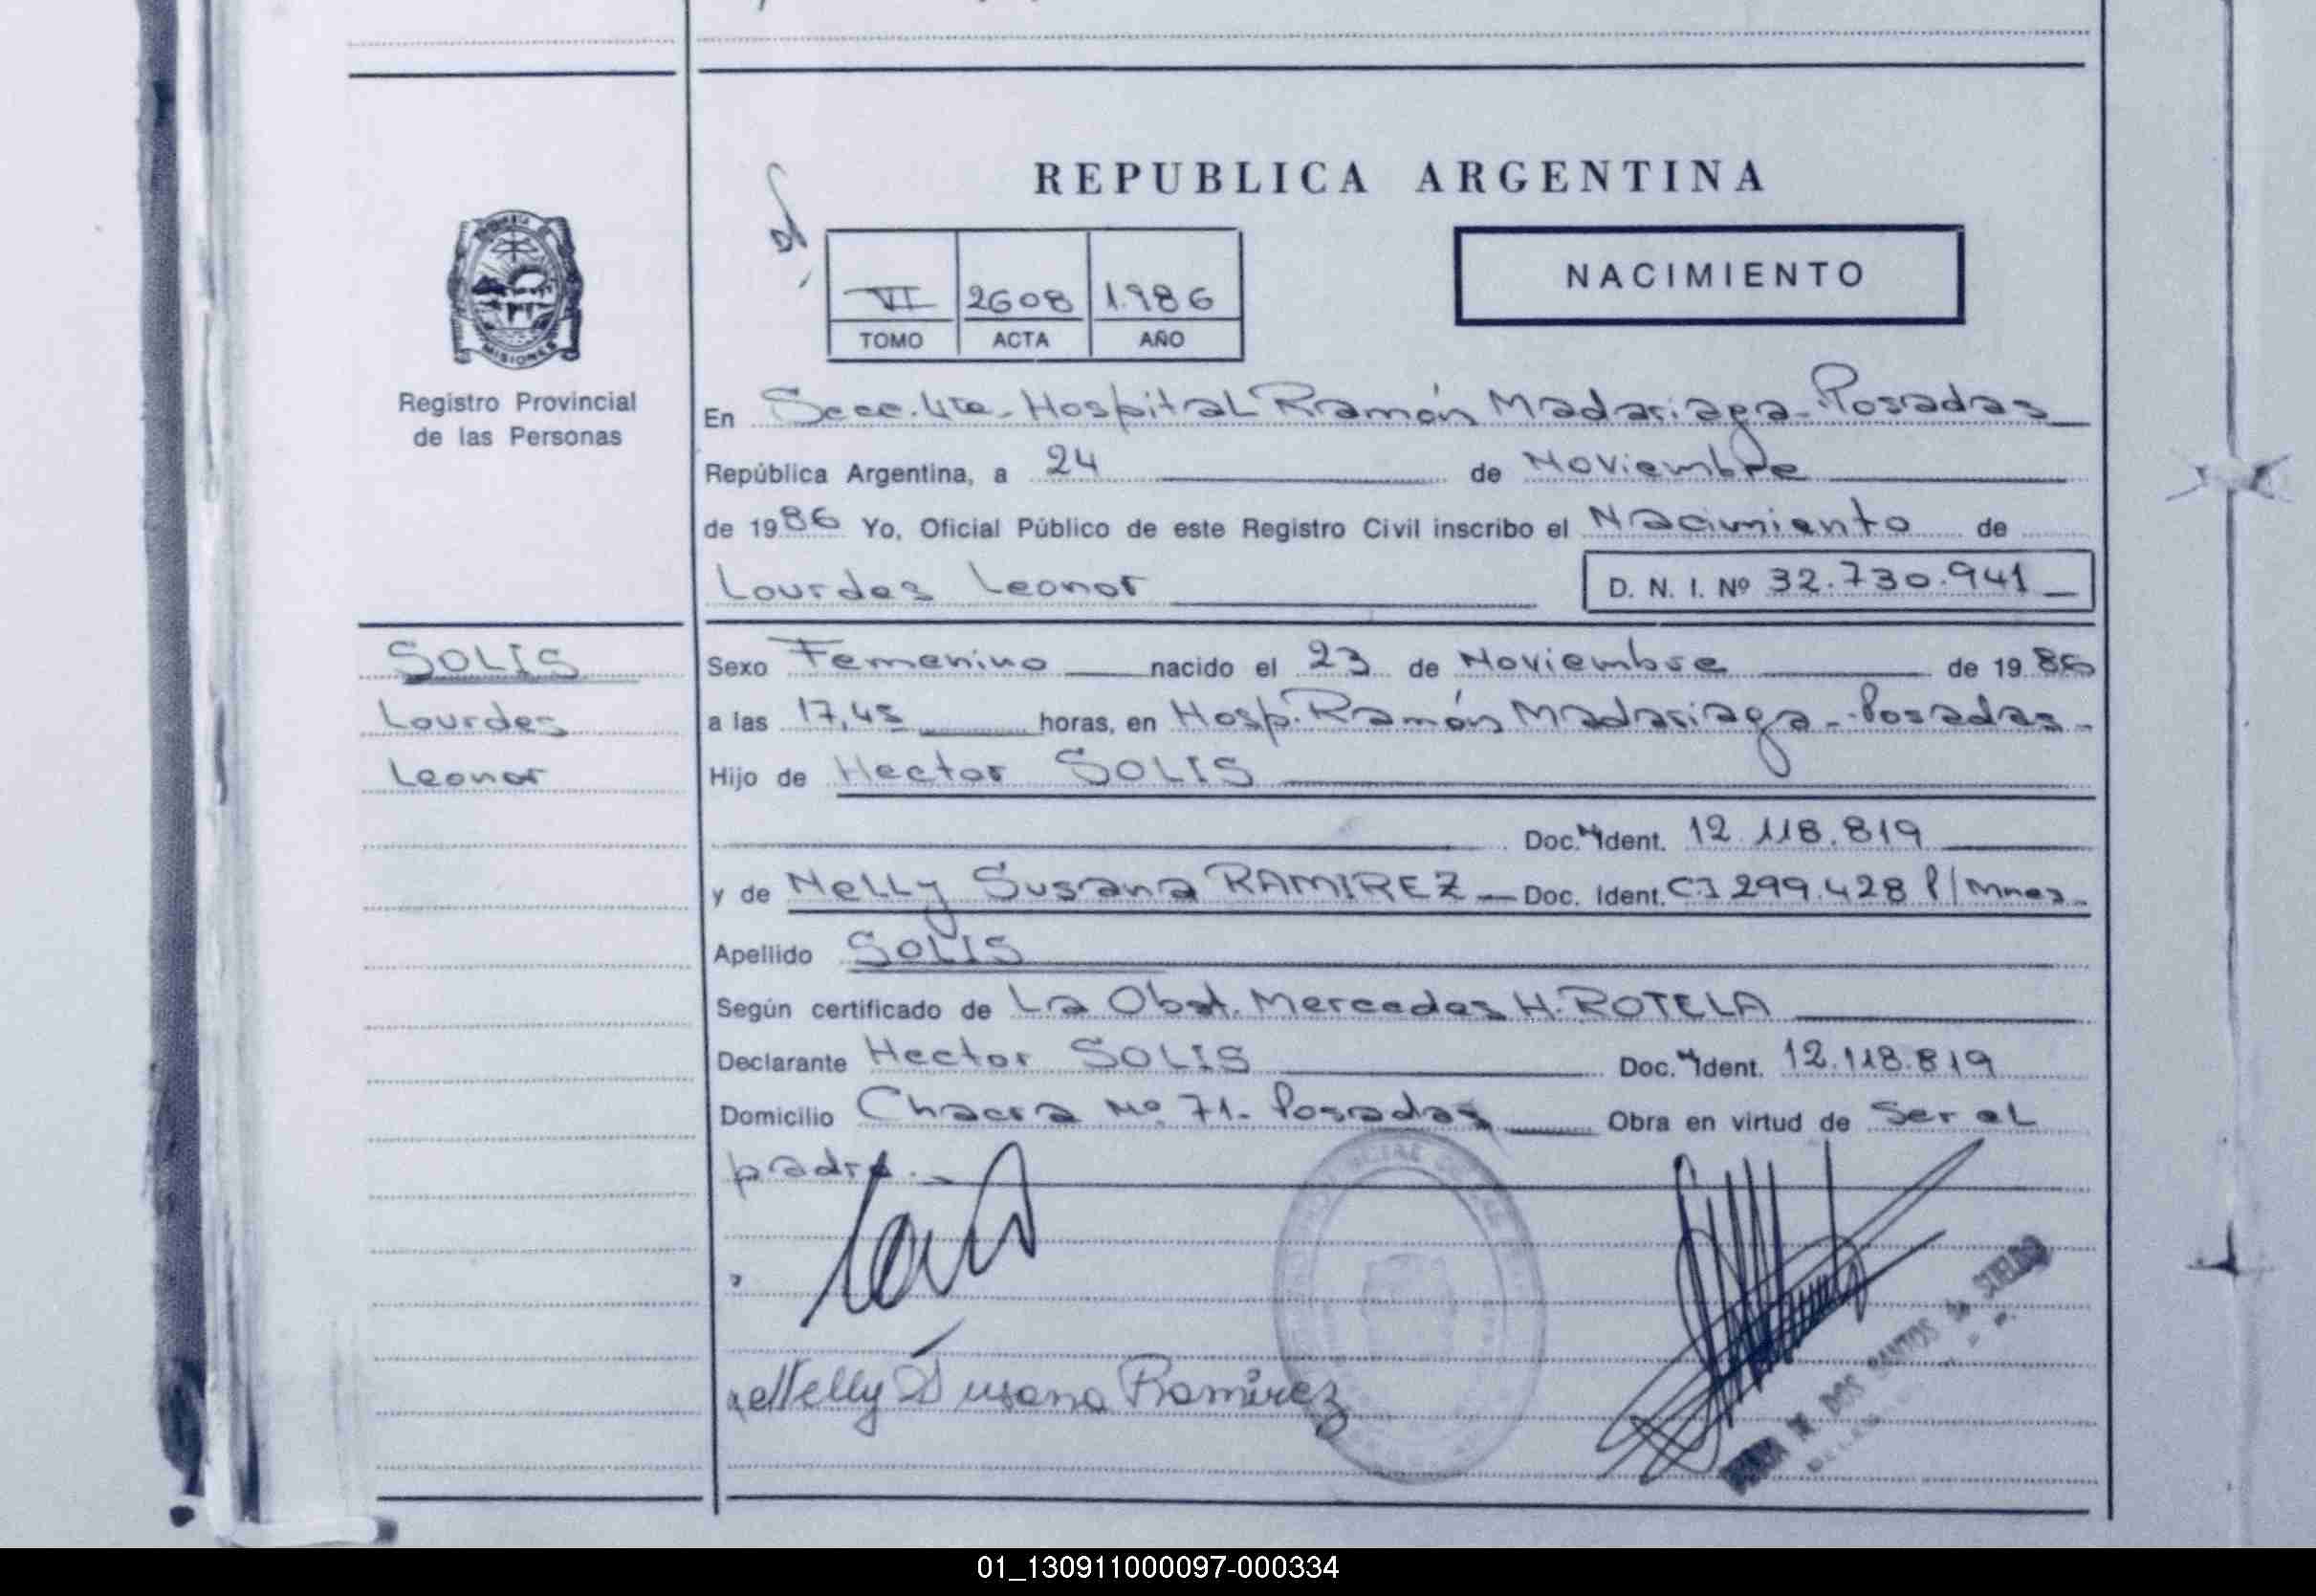 REPUBLICA ARGENTINA
VI 2608 1.986
TOMO ACTA AÑO
NACIMIENTO
MISIONES
Registro Provincial
de las Personas
En Secc. 4ta - Hospital Ramón Madariaga - Posadas
República Argentina, a 24 de Noviembre
de 1986 Yo, Oficial Público de este Registro Civil inscribo el Nacimiento de
Lourdes Leonor D. N. I. Nº 32.730.941
SOLIS
Lourdes
Leonor
Sexo Femenino nacido el 23 de Noviembre de 1986
a las 17,45 horas, en Hosp. Ramón Madariaga - Posadas -
Hijo de Hector SOLIS
Doc. Ident. 12.118.819
y de Nelly Susana RAMIREZ - Doc. Ident. CI 299.428 P/Mnes.
Apellido SOLIS
Según certificado de La Obst. Mercedes H. ROTELA
Declarante Hector SOLIS Doc. Ident. 12.118.819
Domicilio Chacra Nº 71 - Posadas Obra en virtud de Ser el
padre. -
Nelly Susana Ramirez
DOS SANTOS de
01_130911000097-000334